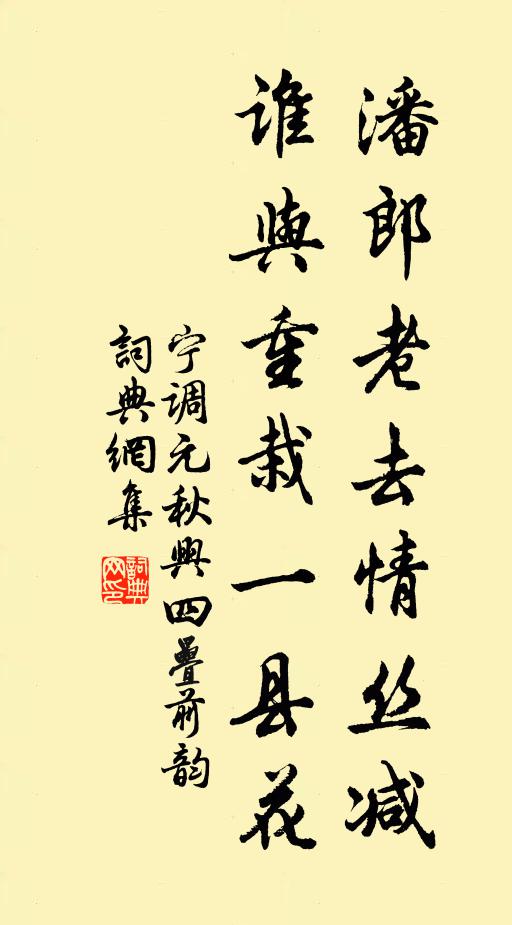 潘郎老去情丝减
谁與重栽一县花
宁调元秋興四疊前韵
詞典網集
詞典网印